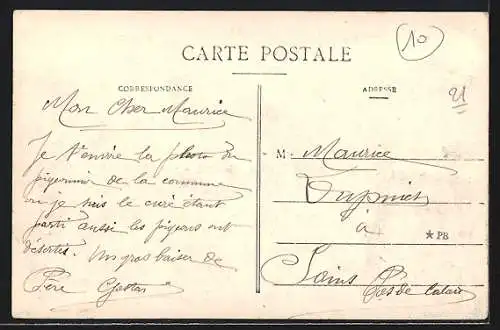 CARTE POSTALE
10
CORRESPONDANCE
ADRESSE
21
Mon Cher Maurice
Je t'envoie la photo du
pigeonnier de la commune
où je suis le curé étant
parti aussi les pigeons ont
désertés. Un gros baiser de
Père Gaston
M. Maurice
à
★ PB
Sains Pas de Calais